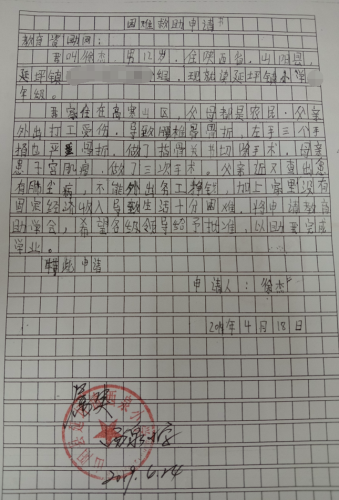 困难救助申请书
教育资助网：
我叫徐杰，男12岁，住陕西省，山阳县，
延坪镇 组，现就读延坪镇
年级。
我家住在高寒山区，父母都是农民，父亲
外出打工受伤，导致腰椎骨骨折，左手三个手
指也严重骨折，做了指骨关节切除手术，母亲
患子宫肌瘤，做了三次手术。父亲近又查出患
有肺尘病，不能外出务工挣钱，加上家里没有
固定经济收入导致生活十分困难，特申请教育
助学金，希望各级领导给予批准，以助我完成
学业。
特此申请
申请人：徐杰
2019年4月18日
属实
2019.6.24